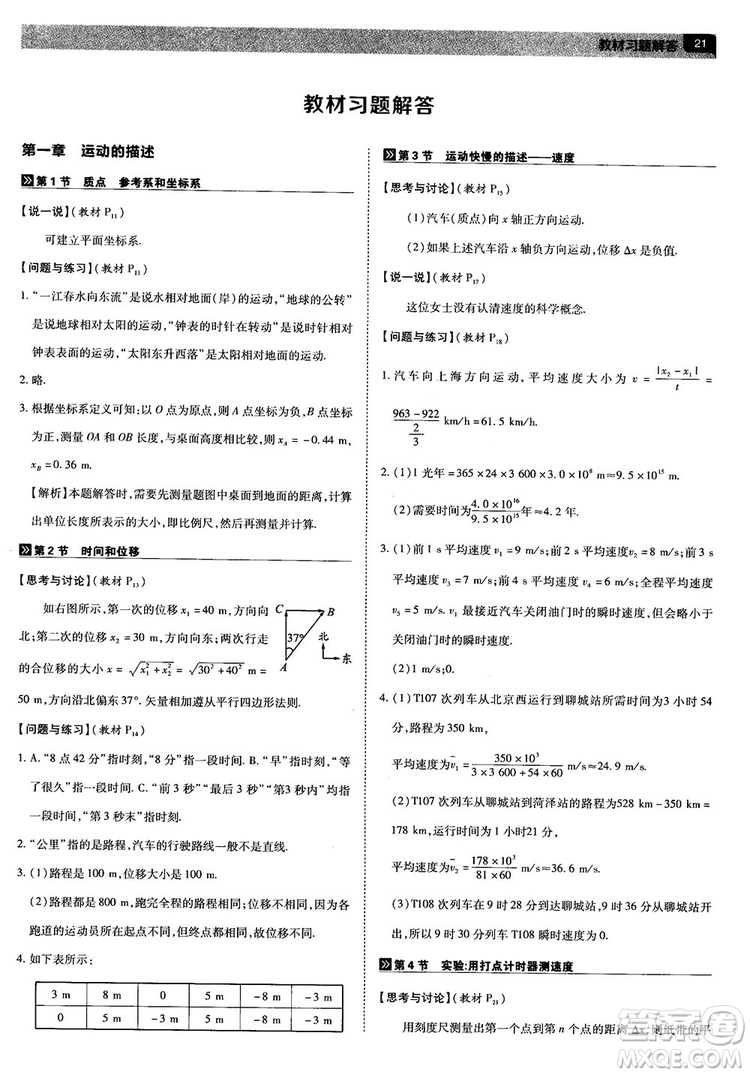 教材习题解答 21
教材习题解答
第一章 运动的描述
第1节 质点 参考系和坐标系
【说一说】(教材 P₁₁)
可建立平面坐标系.
【问题与练习】(教材 P₁₁)
1. “一江春水向东流”是说水相对地面(岸)的运动,“地球的公转”
是说地球相对太阳的运动,“钟表的时针在转动”是说时针相对
钟表表面的运动,“太阳东升西落”是太阳相对地面的运动.
2. 略.
3. 根据坐标系定义可知:以 O 点为原点,则 A 点坐标为负,B 点坐标
为正,测量 OA 和 OB 长度,与桌面高度可以得 x_A=-0.44 m,
x_B=0.36 m.
【解析】本题解答时,需要先测量题图中桌面到地面的距离,计算
出单位长度所表示的大小,即比例尺,然后测量并计算.
第2节 时间和位移
【思考与讨论】(教材 P₁₃)
如右图所示,第一次的位移 x₁=40 m,方向
北;第二次的位移 x₂=30 m,方向向东;两次行走
的合位移的大小 x=√(x₁²+x₂²)=√(30²+40²) m=
50 m,方向沿北偏东 37°. 矢量相加遵从平行四边形法则.
C B 37° A 北 东
【问题与练习】(教材 P₁₄)
1. A.“8 点 42 分”指时刻,“8 分”指一段时间. B.“早”指时刻,“等
了很久”指时间间隔. C.“前 3 秒”“最后 3 秒”“第 3 秒内”指时
间间隔,“第 3 秒末”指时刻.
2. “公里”指的是路程,汽车的行驶路线一般不是直线.
3. (1)路程是 100 m,位移大小是 100 m.
(2)路程都是 800 m,跑完全程的路程相同;位移不相同,各
跑道的运动员所在起点不相同,终点也不相同.
4. 如下表所示:
3 m 8 m 0 5 m -8 m -3 m
0 5 m -3 m 5 m -8 m -3 m
第3节 运动快慢的描述——速度
【思考与讨论】(教材 P₁₅)
(1)汽车(质点)向 x 轴正方向运动.
(2)如果上述汽车沿 x 轴负方向运动,位移 Δx 是负值.
【说一说】(教材 P₁₇)
这位女士没有认清速度的科学概念.
【问题与练习】(教材 P₁₈)
1. 汽车向上海方向运动,平均速度大小为 v=|x₂-x₁|/t=
(963-922)/(2/3) km/h=61.5 km/h.
2. (1)1 光年=365×24×3 600×3.0×10⁸ m≈9.5×10¹⁵ m.
(2)需要时间为 4.0×10¹⁶/9.5×10¹⁵ 年≈4.2 年.
3. (1)前 1 s 平均速度 v₁=9 m/s;前 2 s 平均速度 v₂=8 m/s;前 3 s
平均速度 v₃=7 m/s;前 4 s 平均速度 v₄=6 m/s;全程平均速度
v₅=5 m/s. v₁ 最接近汽车关闭油门时的瞬时速度,但会略小于
关闭油门时的瞬时速度.
(2)1 m/s;0.
4. (1)T107 次列车从北京西运行到聊城站所需时间为3 小时 54
分,路程为 350 km,
平均速度为v̄₁=350×10³/(3×3 600+54×60) m/s≈24.9 m/s.
(2)T107 次列车从聊城站到菏泽站的路程为528 km-350 km=
178 km,运行时间为1小时21分,
平均速度为v̄₂=178×10³/(81×60) m/s≈36.6 m/s.
(3)T108 次列车在 9 时 30 分到达聊城站,9 时 36 分离开聊城站,
所以,9时 30 分至 9 时 36 分列车T108 瞬时速度为0.
第4节 实验:用打点计时器测速度
【思考与讨论】(教材 P₂₁)
用刻度尺测量出第一个点到第 n 个点的距离 Δx,则纸带的平